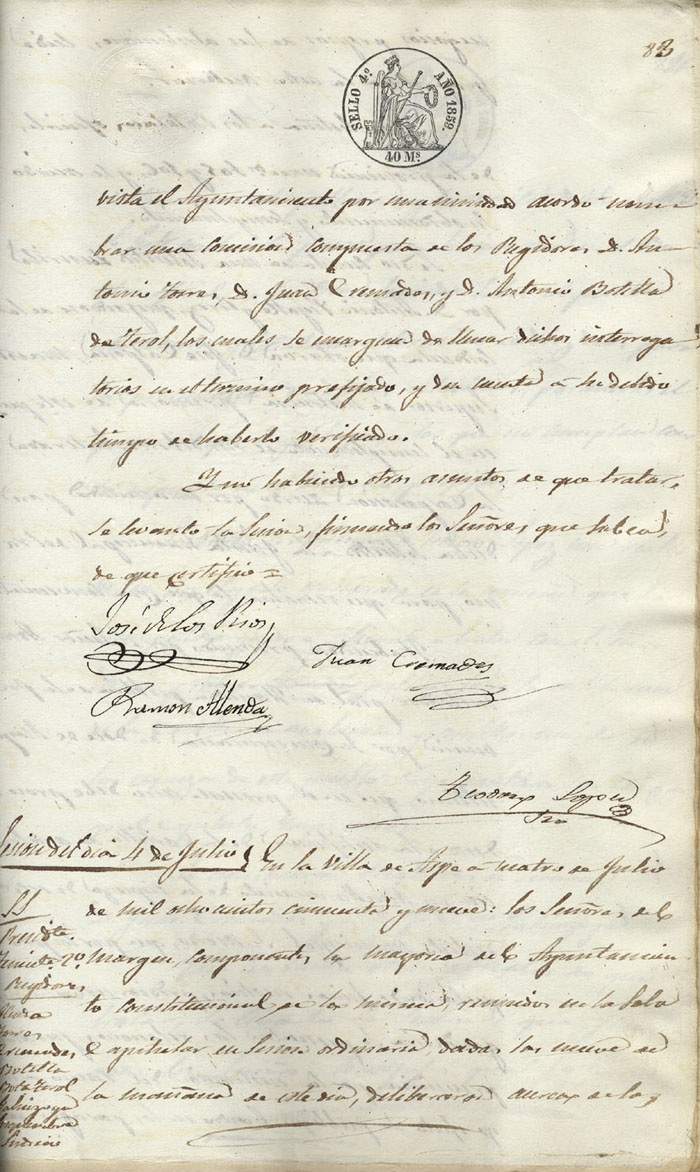 82
SELLO 4º AÑO 1859.
40 Ms.
vista el Ayuntamiento por unanimidad acordó nom-
brar una Comision compuesta de los Regidores D. An-
tonio Torres, D. Juan Cremades, y D. Antonio Botella
de Terol, los cuales se encarguen de llenar dichos interroga
torios en el termino prefijado, y den cuenta à su debido
tiempo de haberlo verificado.
Y no habiendo otros asuntos de que tratar,
se levantó la Sesion, firmando los Señores que saben,
de que certifico =
José de los Rios
Juan Cremades
Ramon Almenda
Teodoro Lopez
Srio
Sesion del dia 4 de Julio
En la villa de Aspe a cuatro de Julio
de mil ochocientos cincuenta y nueve: los Señores del
margen, componentes la mayoria del Ayuntamien
to constitucional de la misma, reunidos en la Sala
Capitular en Sesion ordinaria dadas las nueve de
la mañana de este dia, deliberaron acerca de los
SS
Presidte.
Teniente 2º
Regidores
Torres
Cremades
Botella
Bot.a Terol
Sindico